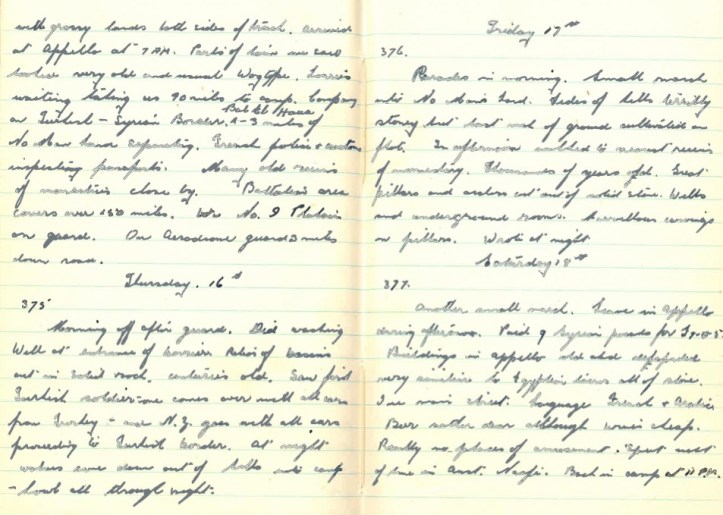 with grassy lands both sides of track. Arrived
at Appello at 7 AM. Parts of town we saw
looked very old and usual Wog type. Lorries
waiting taking us 70 miles to camp. Company
on Turkish - Syrian Border. 2-3 miles of
Bab El Haua
No Man land separating. French police & customs
inspecting passports. Many old ruins
of monasteries close by. Battalion area
covers over 150 miles. We No. 9 Platoon
on guard. On Aerodrome guard 3 miles
down road.
Thursday. 16th
375
Morning off after guard. Did washing
Well at entrance of barrier Relics of basins
cut in solid rock, centuries old. Saw first
Turkish soldier - one comes over with all cars
from Turkey - one N.Z. goes with all cars
proceeding to Turkish border. At night
wolves come down out of hills into camp
- howl all through night.
Friday 17th
376.
Parades in morning. Small march
into No Mans Land. Sides of hills terribly
stoney but last inch of ground cultivated on
flat. In afternoon walked to nearest ruins
of monastery. Thousands of years old. Great
pillars and arches cut out of solid stone. Wells
and underground rooms. Marvellous carvings
on pillars. Wrote at night.
Saturday 18th
377.
Another small march. Leave in Appello
during afternoon. Paid 9 Syrian pounds for
Buildings in appello old and
very similar to Egyptian towns all of stone.
One main street. Language French & Arabic
Beer rather dear although wine cheap.
Really no places of amusement. Spent most
of time in Aust. Naafi. Back in camp at 11 P.M.